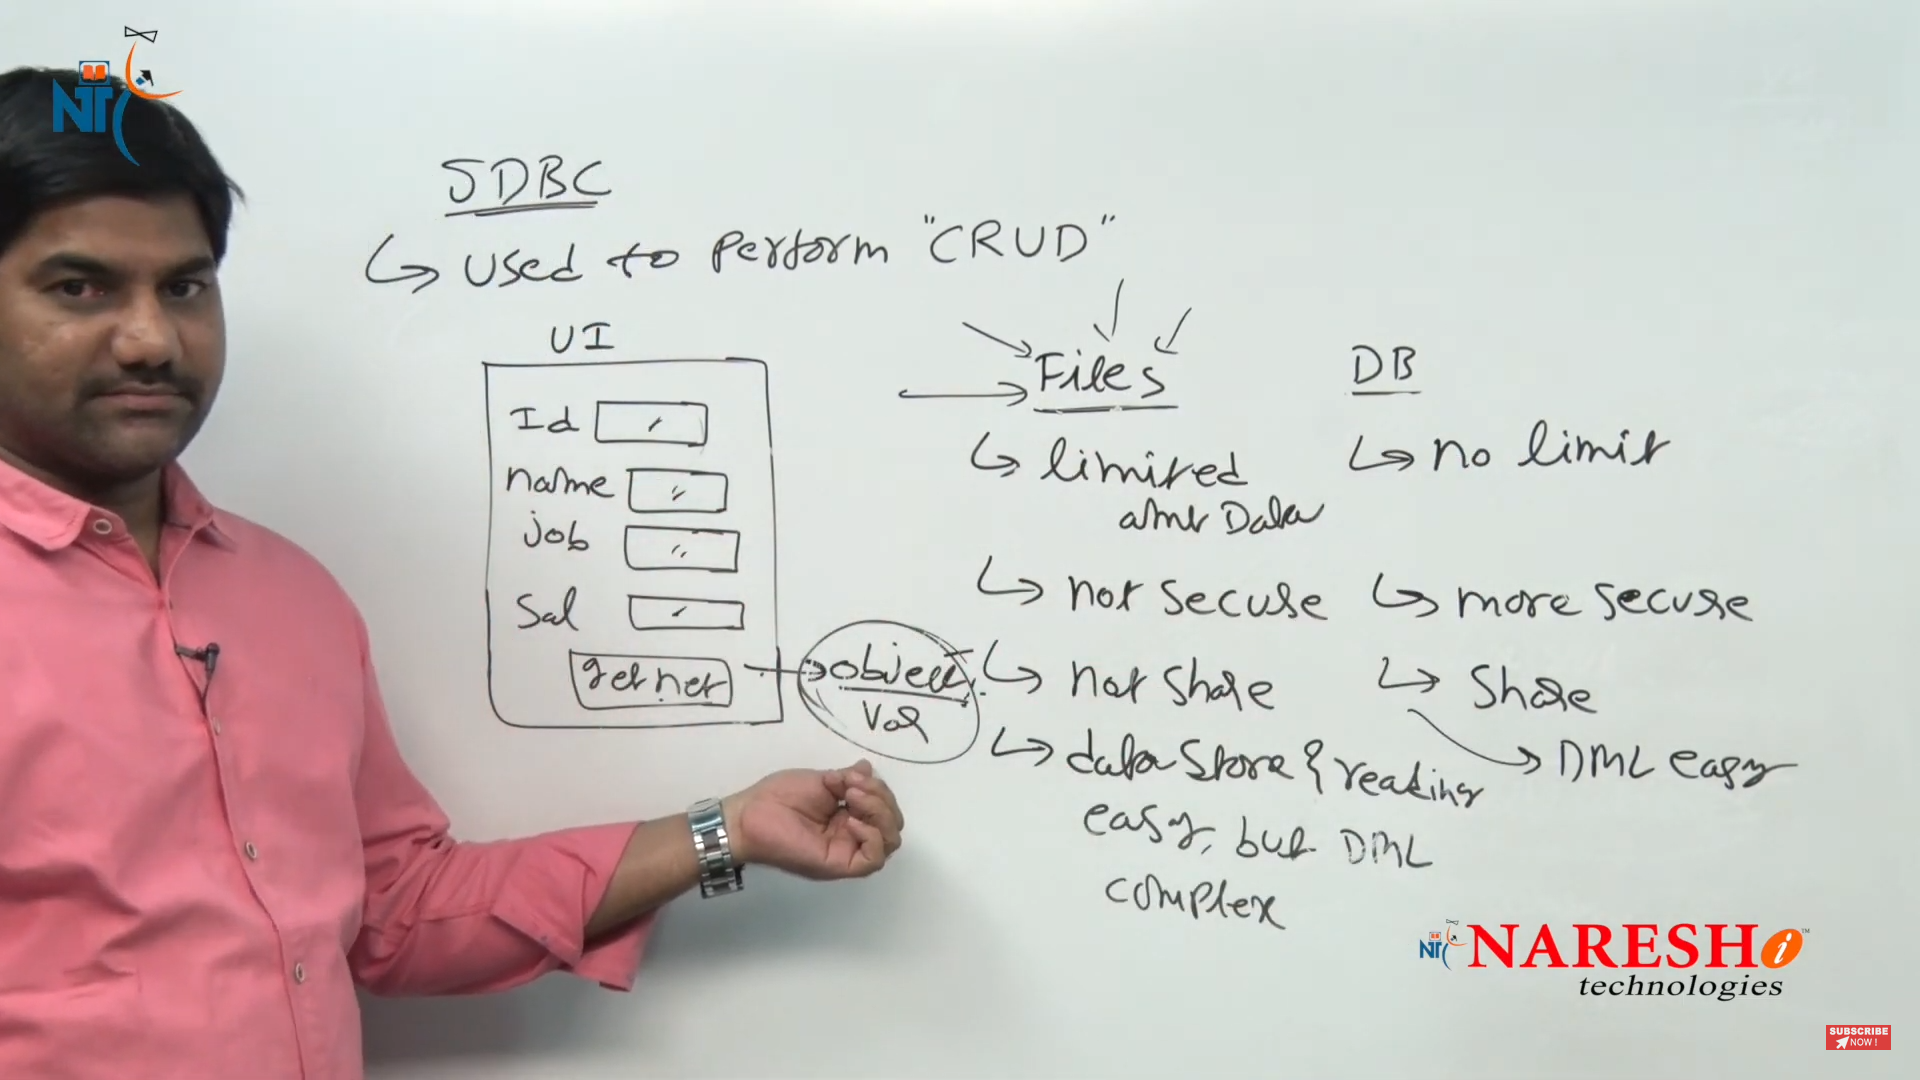 NT
JDBC
↳ used to perform "CRUD"
UI
Id
name
job
Sal
getnet
object
Var
Files
↳ limited
amt Data
↳ not secure
↳ not share
↳ data store & reading
easy, but DML
complex
DB
↳ no limit
↳ more secure
↳ share
→ DML easy
NT NARESH i ™
technologies
SUBSCRIBE
NOW !